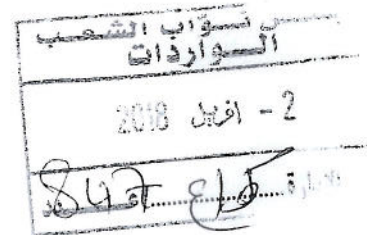 مجلس نواب الشعب
الواردات
2 - افريل 2018
847